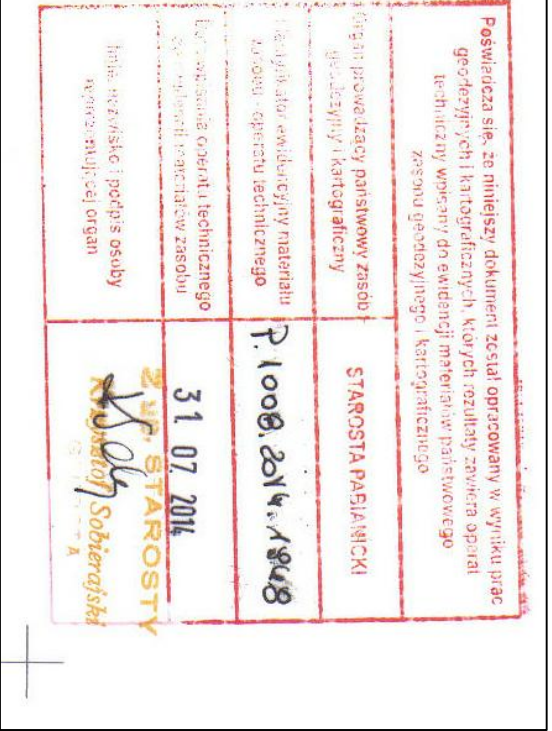 Poświadcza się, że niniejszy dokument został opracowany w wyniku prac
geodezyjnych i kartograficznych, których rezultaty zawiera operat
techniczny wpisany do ewidencji materiałów państwowego
zasobu geodezyjnego i kartograficznego
Organ prowadzący państwowy zasób
geodezyjny i kartograficzny
STAROSTA PABIANICKI
identyfikator ewidencyjny materiału
zasobu - operatu technicznego
P.1008.2014.1948
operatu technicznego
materiałów zasobu
31. 07. 2014
Imię, nazwisko i podpis osoby
reprezentującej organ
Z up. STAROSTY
Krzysztof Sobierajski